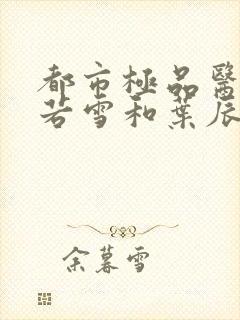 都市極品醫
若雪和葉辰
余暮雪